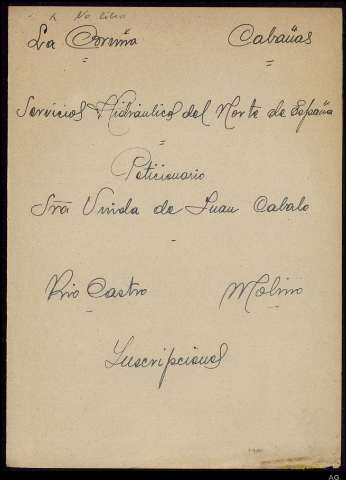 No libro
La Coruña Cabañas
Servicios Hidráulicos del Norte de España
Peticionario
Sra Viuda de Juan Cabalo
Rio Castro Molino
Inscripciones
AG